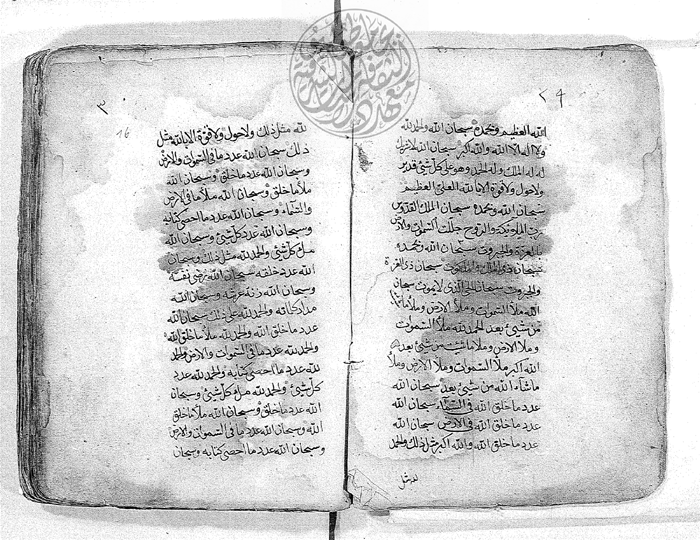 ٢٩
الله العظيم وبحمده سبحان الله والحمد لله
ولا اله الا الله والله اكبر سبحان الله لا شريك
له له الملك وله الحمد وهو على كل شئ قدير
ولا حول ولا قوة الا بالله العلى العظيم
سبحان الله وبحمده سبحان الملك القدوس
رب الملائكة والروح جللت السموات والارض
بالعزة والجبروت سبحان الله وبحمده
سبحان ذى الملك والملكوت سبحان ذى العزة
والجبروت سبحان الحى الذى لا يموت سبحان
الله ملأ السموات وملأ الارض وملأ ما
من شئ بعد الحمد لله ملأ السموات
وملأ الارض وملأ ما شئت من شئ بعد
الله اكبر ملأ السموات وملأ الارض وملأ
ما شاء الله من شئ بعد سبحان الله
عدد ما خلق الله فى السماء سبحان الله
عدد ما خلق الله فى الارض سبحان الله
عدد ما خلق الله والله اكبر مثل ذلك والحمد
لله مثل
٣٠
16
لله مثل ذلك ولا حول ولا قوة الا بالله مثل
ذلك سبحان الله عدد ما فى السموات والارض
وسبحان الله عدد ما خلق وسبحان الله
ملأ ما خلق وسبحان الله ملأ ما فى الارض
والسماء وسبحان الله عدد ما احصى كتابه
وسبحان الله عدد كل شئ وسبحان الله
ملأ كل شئ والحمد لله مثل ذلك وسبحان
الله عدد خلقه سبحان الله رضى نفسه
وسبحان الله زنة عرشه وسبحان الله
مداد كلماته والحمد لله مثل ذلك سبحان الله
عدد ما خلق الله والحمد لله ملأ ما خلق الله
والحمد لله عدد ما فى السموات والارض والحمد
لله عدد ما احصى كتابه والحمد لله عدد
كل شئ والحمد لله ملأ كل شئ وسبحان
الله عدد ما خلق وسبحان الله ملأ ما خلق
الله وسبحان الله عدد ما فى السموات والارض
وسبحان الله عدد ما احصى كتابه وسبحان